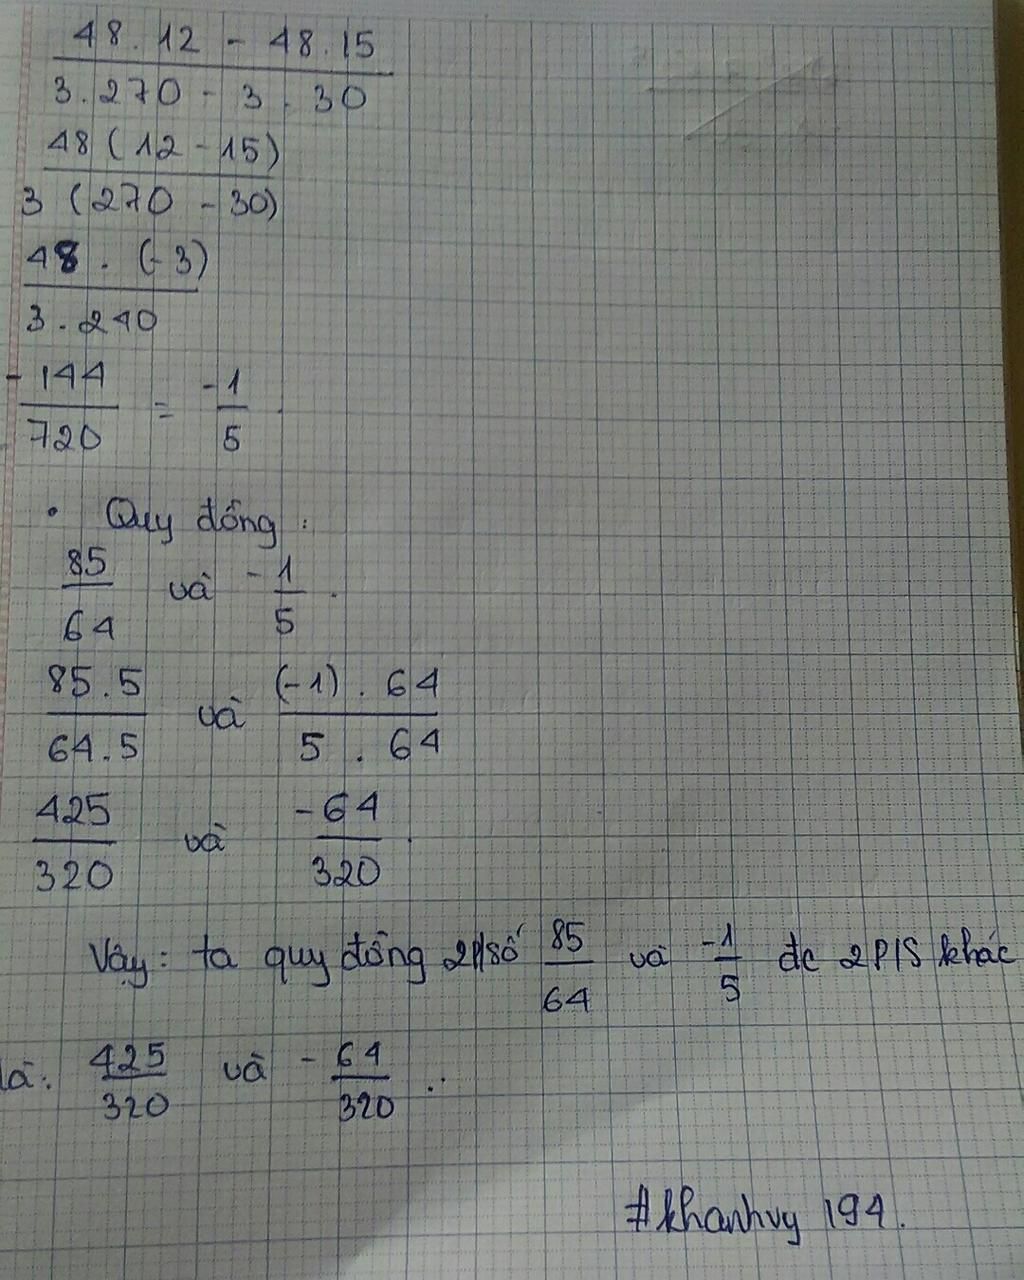 48.12 - 48.15
3.270 - 3.30
48(12-15)
3(270-30)
48.(-3)
3.240
-144/720 = -1/5
• Quy đồng:
85/64 và -1/5.
85.5/64.5 và (-1).64/5.64
425/320 và -64/320.
Vậy: ta quy đồng 2P/số 85/64 và -1/5 đc 2P/S khác
là: 425/320 và -64/320.
#khanhvy 194.